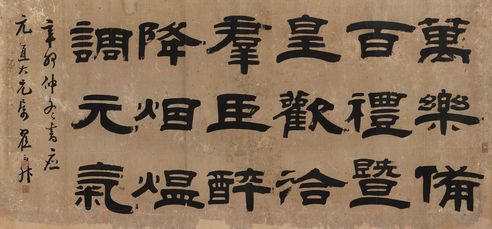 萬樂備
百禮暨
皇歡洽
羣臣醉
降烟熅
調元氣
辛卯仲冬書應
元直大兄屬 翟云升